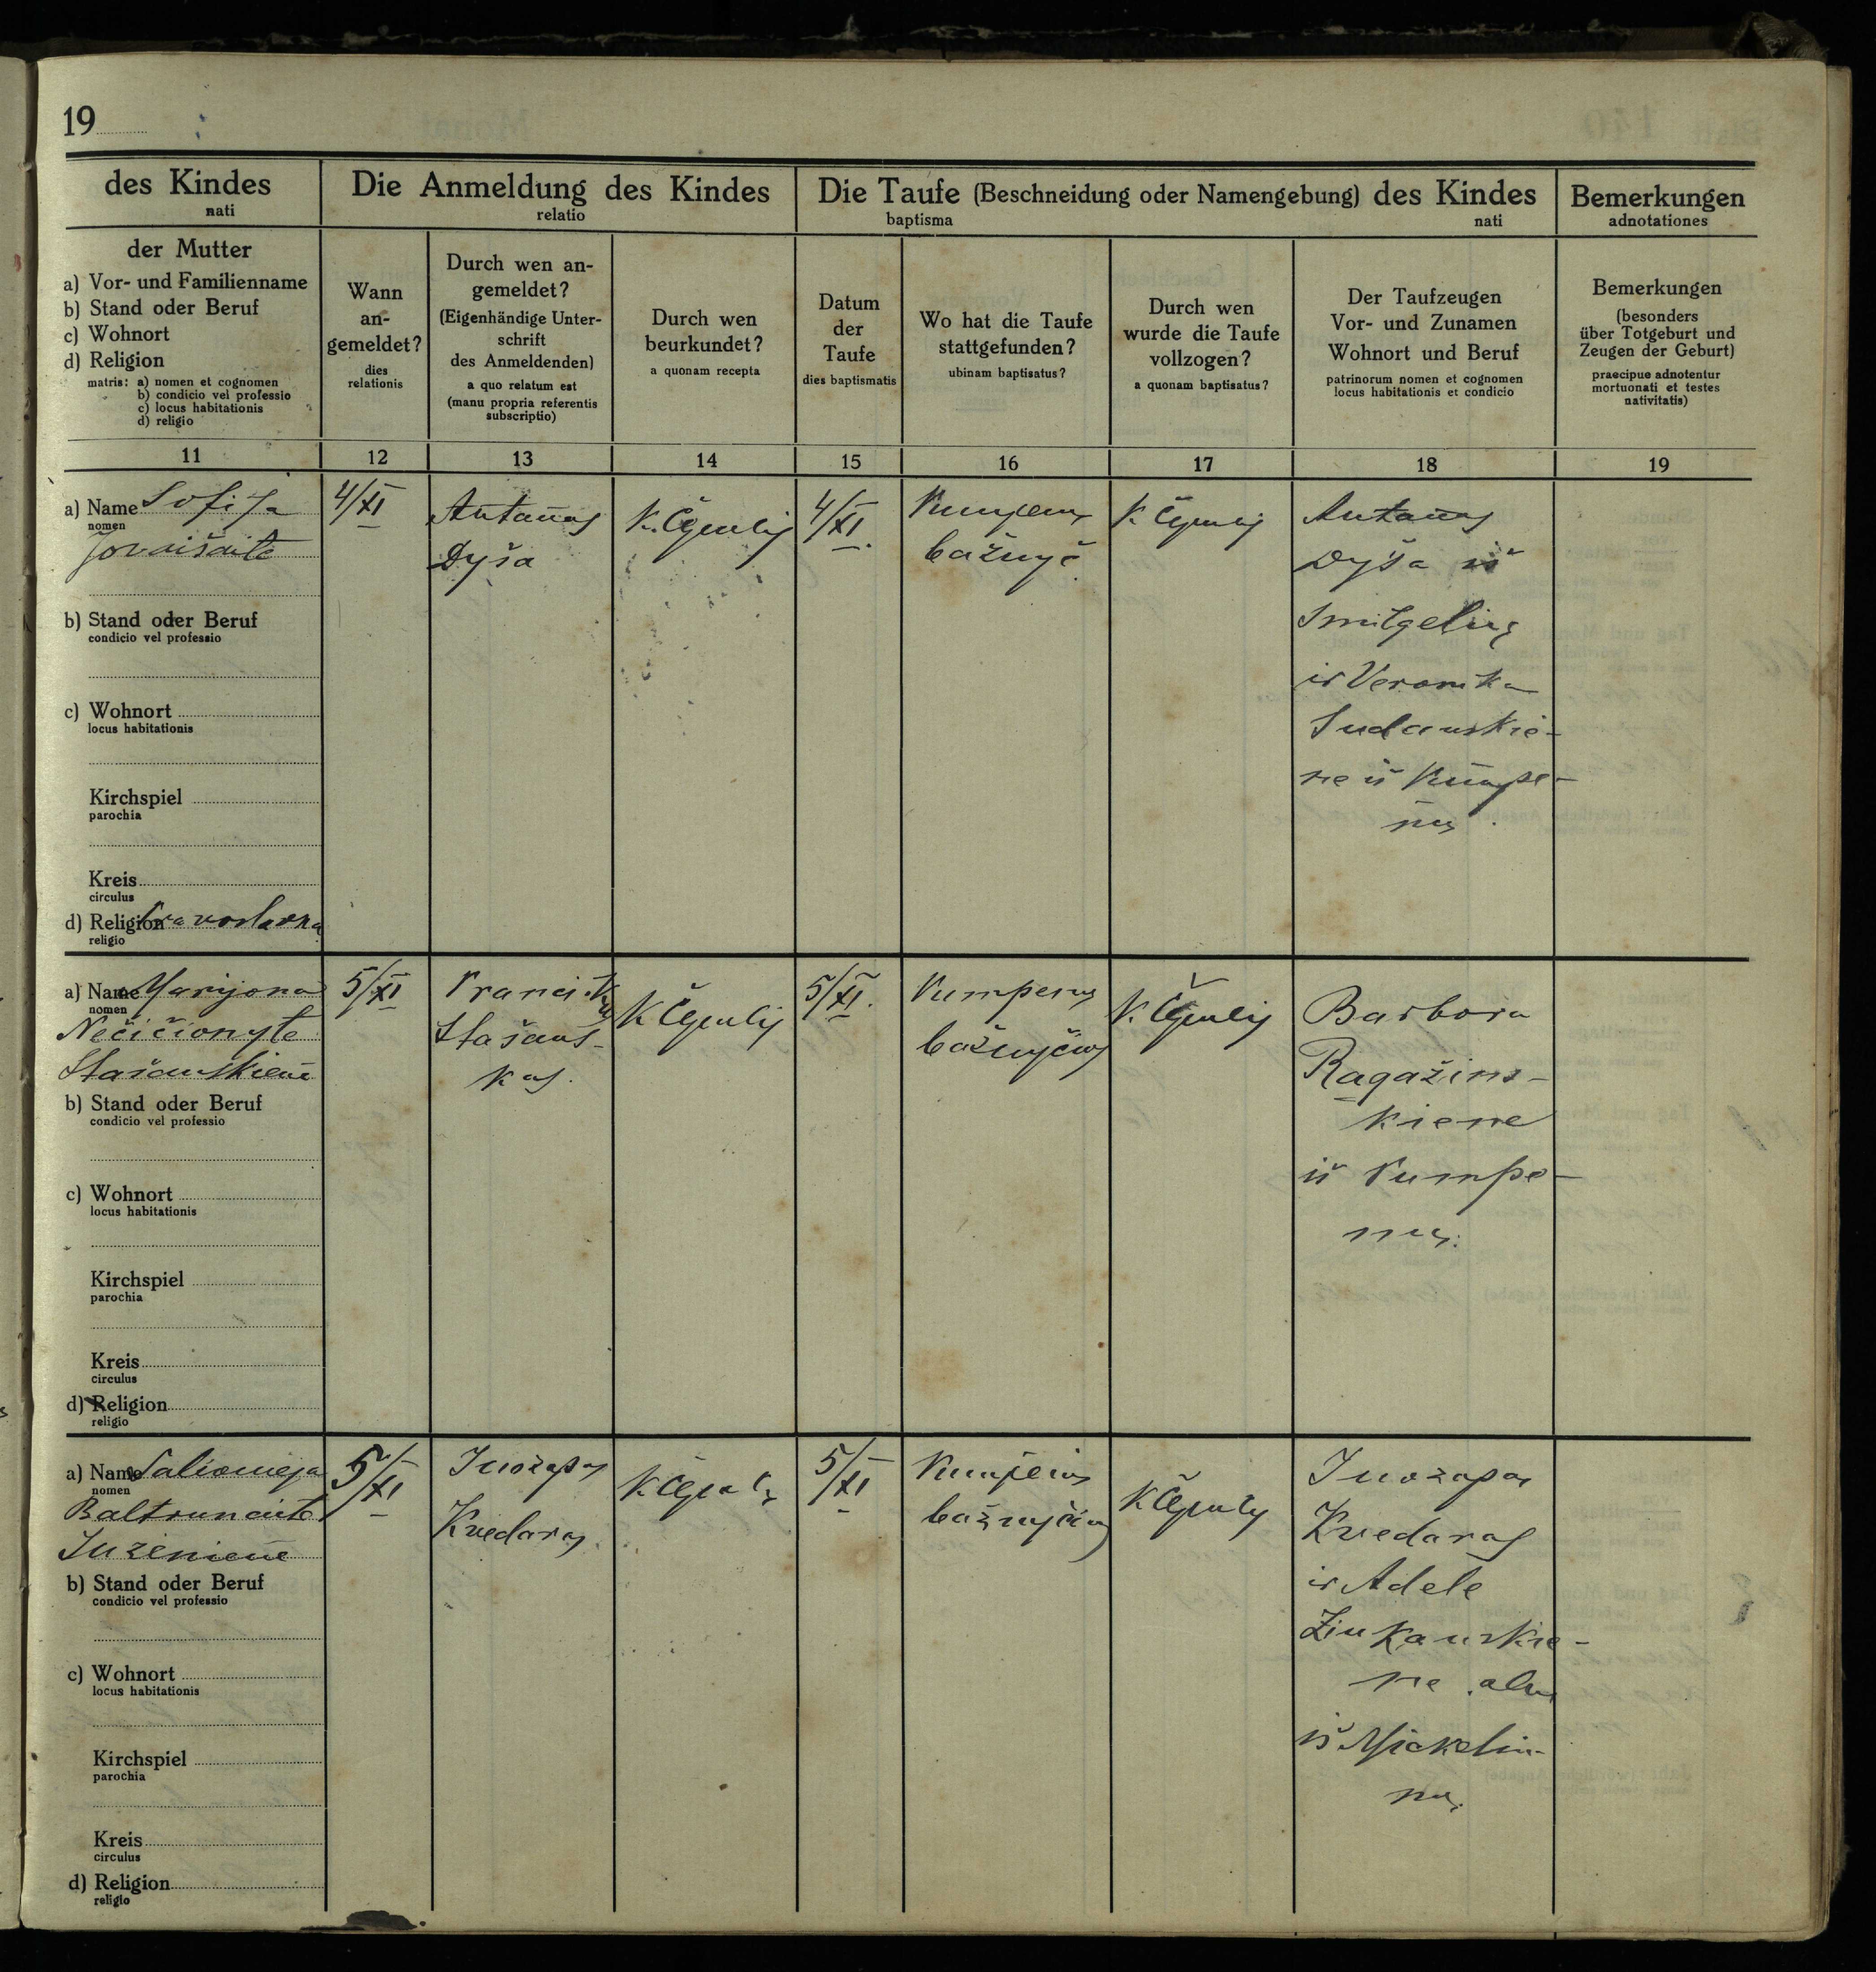 19
des Kindes
nati
Die Anmeldung des Kindes
relatio
Die Taufe (Beschneidung oder Namengebung) des Kindes
baptisma nati
Bemerkungen
adnotationes
der Mutter
a) Vor- und Familienname
b) Stand oder Beruf
c) Wohnort
d) Religion
matris: a) nomen et cognomen
b) condicio vel professio
c) locus habitationis
d) religio
Wann
an-
gemeldet?
dies
relationis
Durch wen an-
gemeldet?
(Eigenhändige Unter-
schrift
des Anmeldenden)
a quo relatum est
(manu propria referentis
subscriptio)
Durch wen
beurkundet?
a quonam recepta
Datum
der
Taufe
dies baptismatis
Wo hat die Taufe
stattgefunden?
ubinam baptisatus?
Durch wen
wurde die Taufe
vollzogen?
a quonam baptisatus?
Der Taufzeugen
Vor- und Zunamen
Wohnort und Beruf
patrinorum nomen et cognomen
locus habitationis et condicio
Bemerkungen
(besonders
über Totgeburt und
Zeugen der Geburt)
praecipue adnotentur
mortuonati et testes
nativitatis)
11 12 13 14 15 16 17 18 19
a) Name Sofija
nomen
Jovaišaitė
b) Stand oder Beruf
condicio vel professio
c) Wohnort
locus habitationis
Kirchspiel
parochia
Kreis
circulus
d) Religion Pravoslavna
religio
4/XI
Antanas
Dyša
K.
4/XI.
bažnyč
K.
Antanas
Dyša iš
Smilgelių
ir Veronika
Sudauskie-
ne iš Kumpe-
nų.
a) Name Marijona
nomen
Nečičionyte
Stašauskienė
b) Stand oder Beruf
condicio vel professio
c) Wohnort
locus habitationis
Kirchspiel
parochia
Kreis
circulus
d) Religion
religio
5/XI
Stašaus-
kas.
K
5/XI.
bažnyčioj
K.
Barbora
Ragažins-
kiene
iš Pumpe-
nų.
a) Name Saliomeja
nomen
Baltrunaitė
b) Stand oder Beruf
condicio vel professio
c) Wohnort
locus habitationis
Kirchspiel
parochia
Kreis
circulus
d) Religion
religio
5/XI
Juozapas
Kvedaras
K.
5/XI
bažnyčioj
K
Juozapas
Kvedaras
ir Adele
Žinkauskie-
ne abu
iš Mickeliu-
nų.